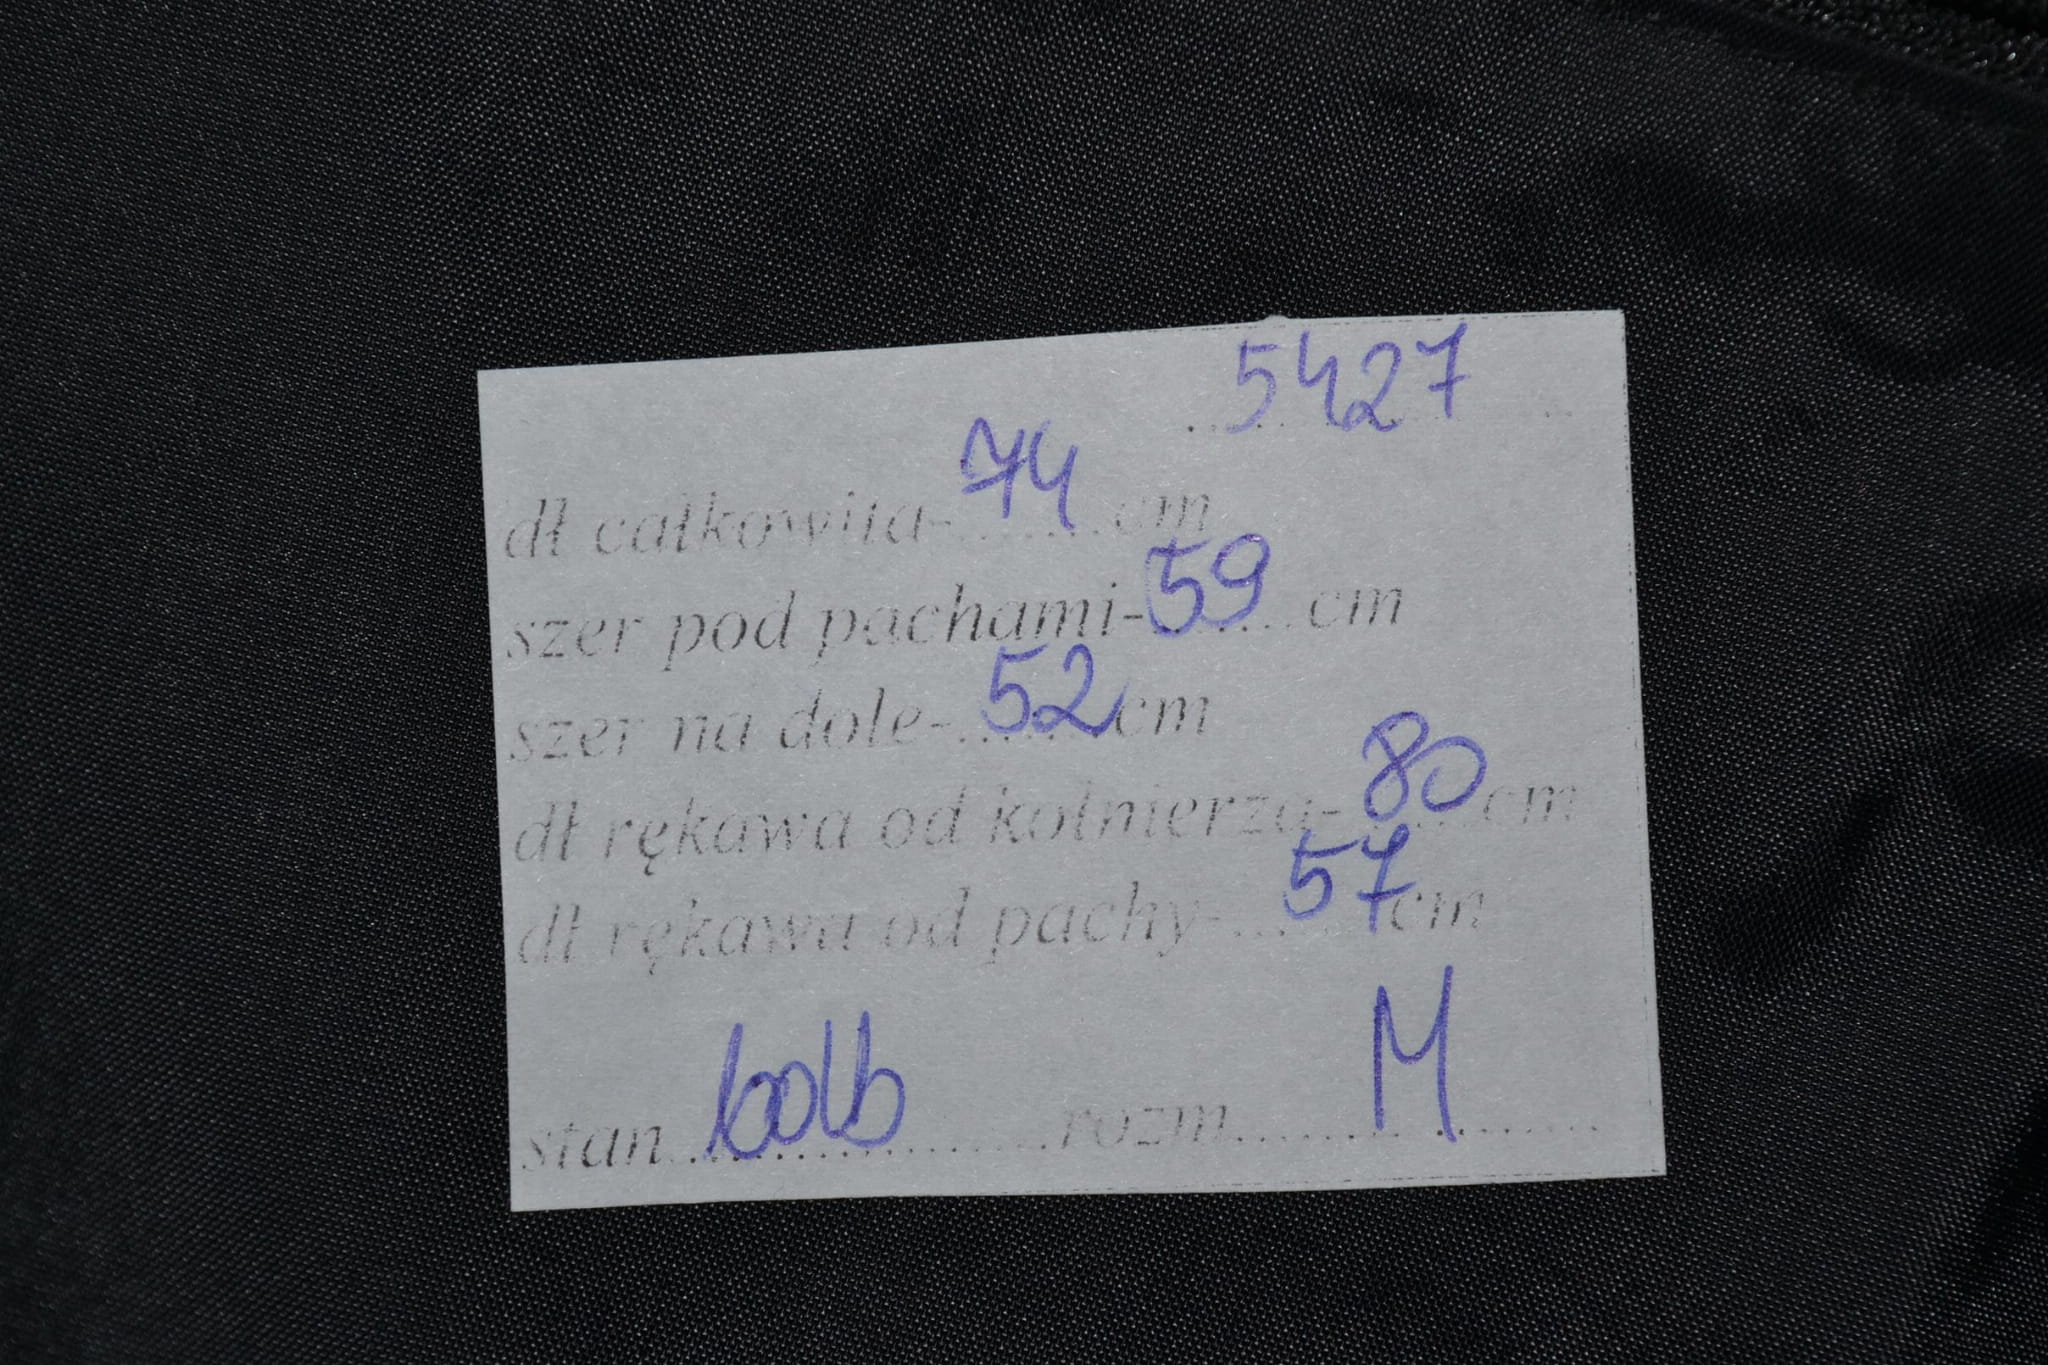 5427
dł całkowita-74 cm
szer pod pachami-59 cm
szer na dole-52 cm
dł rękawa od kołnierza-80 cm
dł rękawa od pachy-57 cm
stan bdb rozm M